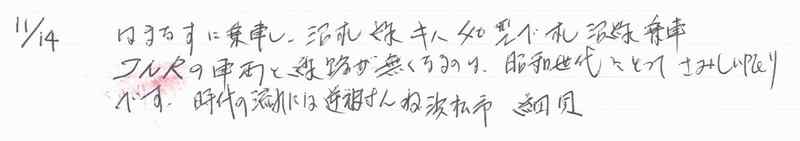 11/14 はまなすに乗車し、沼札線キハ40型で札沼線乗車
の車両と線路が無くなるのは、昭和世代にとってさみしい限り
です。時代の流れには逆らえませんね 浜松市